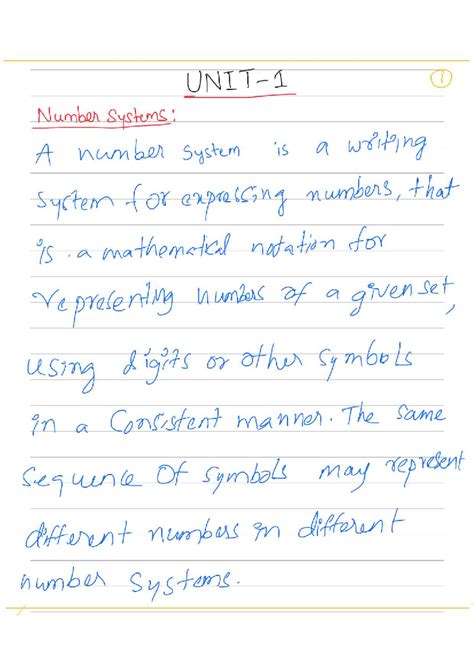 UNIT-1
1
Number Systems:
A number system is a writing
system for expressing numbers, that
is a mathematical notation for
representing numbers of a given set,
using digits or other symbols
in a consistent manner. The same
sequence of symbols may represent
different numbers in different
number systems.